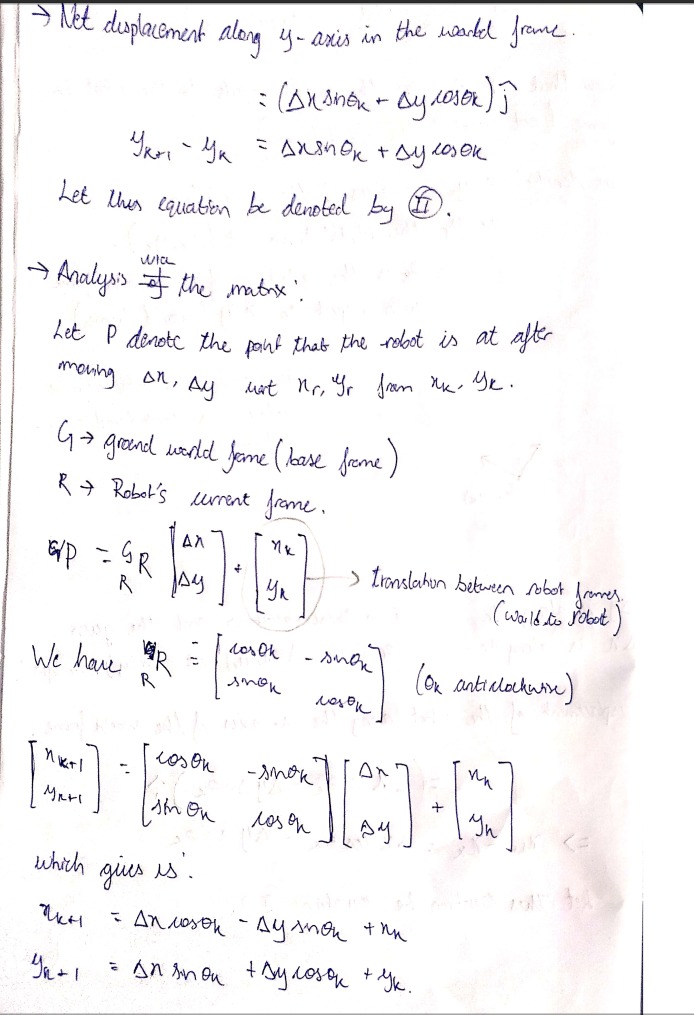 → Net displacement along y-axis in the world frame.
= (Δx sinθk + Δy cosθk) ĵ
yk+1 - yk = Δx sinθk + Δy cosθk
Let this equation be denoted by (II).
→ Analysis via the matrix:
Let P denote the point that the robot is at after
moving Δx, Δy wrt xr, yr from xk, yk.
G → ground world frame (base frame)
R → Robot's current frame.
GP = G R R [Δx Δy] + [xk yk] → translation between robot frames.
(world to robot)
We have G R R = [cosθk - sinθk sinθk cosθk] (θk anticlockwise)
[xk+1 yk+1] = [cosθk -sinθk sinθk cosθk] [Δx Δy] + [xk yk]
which gives us:
xk+1 = Δx cosθk - Δy sinθk + xk
yk+1 = Δx sinθk + Δy cosθk + yk.